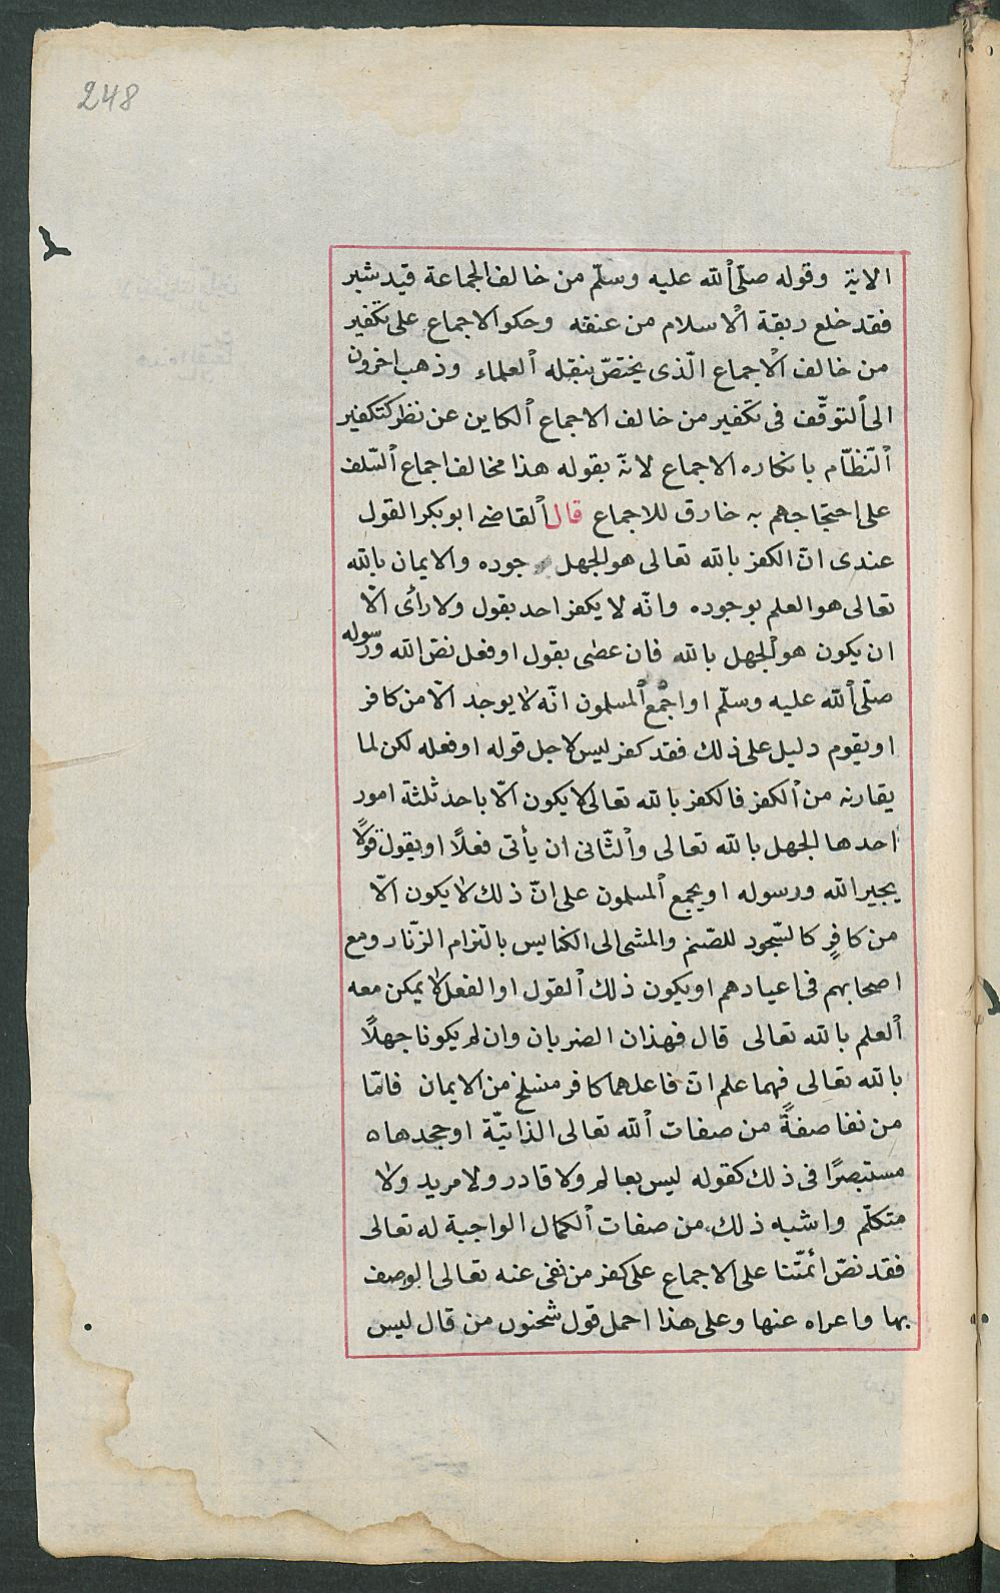 248
الاية وقوله صلّى ٱلله عليه وسلّم من خالف الجماعة قيد شبر
فقد خلع ربقة ٱلاسلام من عنقه وحكو الاجماع على تكفير
من خالف ٱلاجماع الّذى يختصّ بنقله ٱلعلماء وذهب اخرون
الى ٱلتوقّف فى تكفير من خالف الاجماع ٱلكاين عن نظر كتكفير
ٱلنّظّام بانكاره الاجماع لانّه بقوله هذا مخالف اجماع ٱلسّلف
على احتجاجهم به خارق للاجماع قال ٱلقاضى ابو بكر القول
عندى انّ الكفر بالله تعالى هو الجهل بوجوده والايمان بالله
تعالى هو العلم بوجوده وانّه لا يكفر احد بقول ولا رأى الّا
ان يكون هو ٱلجهل بالله فان عصى بقول او فعل نصّ الله ورسوله
صلّى ٱلله عليه وسلّم او اجمع ٱلمسلمون انّه لا يوجد الّا من كافر
او يقوم دليل على ذلك فقد كفر ليس لاجل قوله او فعله لكن لما
يقارنه من ٱلكفر فالكفر بالله تعالى لا يكون الّا باحد ثلثة امور
احدها الجهل بالله تعالى وٱلثّانى ان يأتى فعلًا او يقول قولًا
يجير الله ورسوله او يجمع ٱلمسلمون على انّ ذلك لا يكون الّا
من كافرٍ كالسّجود للصّنم والمشى الى الكنايس بالتزام الزّنار ومع
اصحابهم فى اعيادهم او يكون ذلك ٱلقول او الفعل لا يمكن معه
ٱلعلم بالله تعالى قال فهذان الضربان وان لم يكونا جهلًا
بالله تعالى فهما علم انّ فاعلهما كافر منسلخ من الايمان فامّا
من نفا صفةً من صفات ٱلله تعالى الذاتيّة او جحدها ه
مستبصرًا فى ذلك كقوله ليس بعالم ولا قادر ولا مريد ولا
متكلّم واشبه ذلك من صفات ٱلكمال الواجبة له تعالى
فقد نصّ ائمّتنا على الاجماع على كفر من نفى عنه تعالى الوصف
بها واعراه عنها وعلى هذا احمل قول سحنون من قال ليس